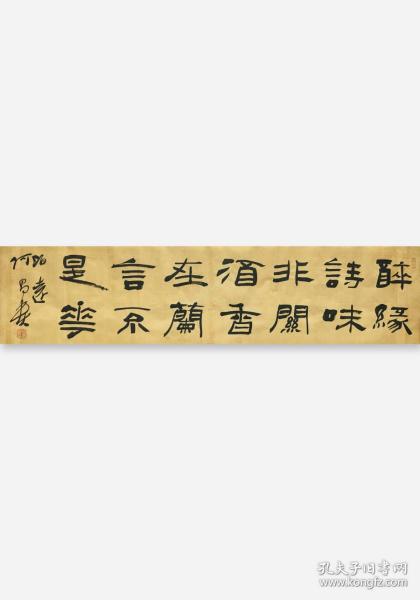 醉緣
詩味
非關
酒香
在蘭
言不
是花
遠
何
孔夫子旧书网